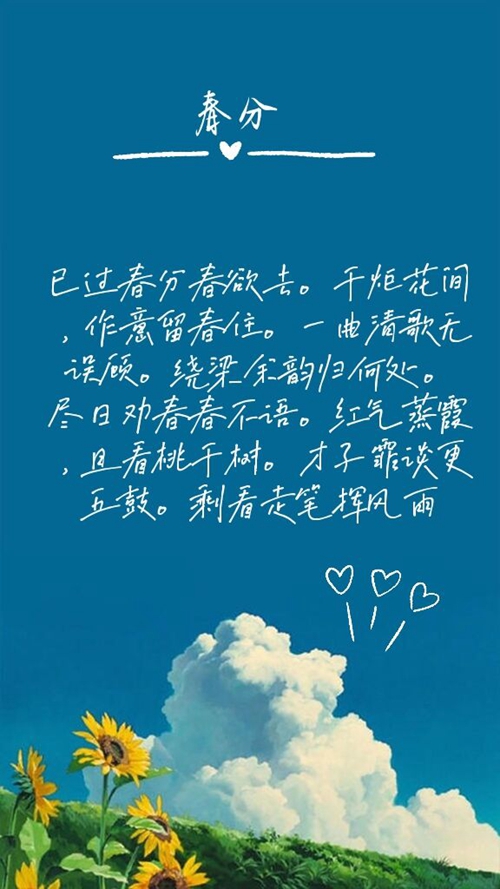 春分
已过春分春欲去。千炬花间
,作意留春住。一曲清歌无
误顾。绕梁余韵归何处。
尽日劝春春不语。红气蒸霞
,且看桃千树。才子霏谈更
五鼓。剩看走笔挥风雨